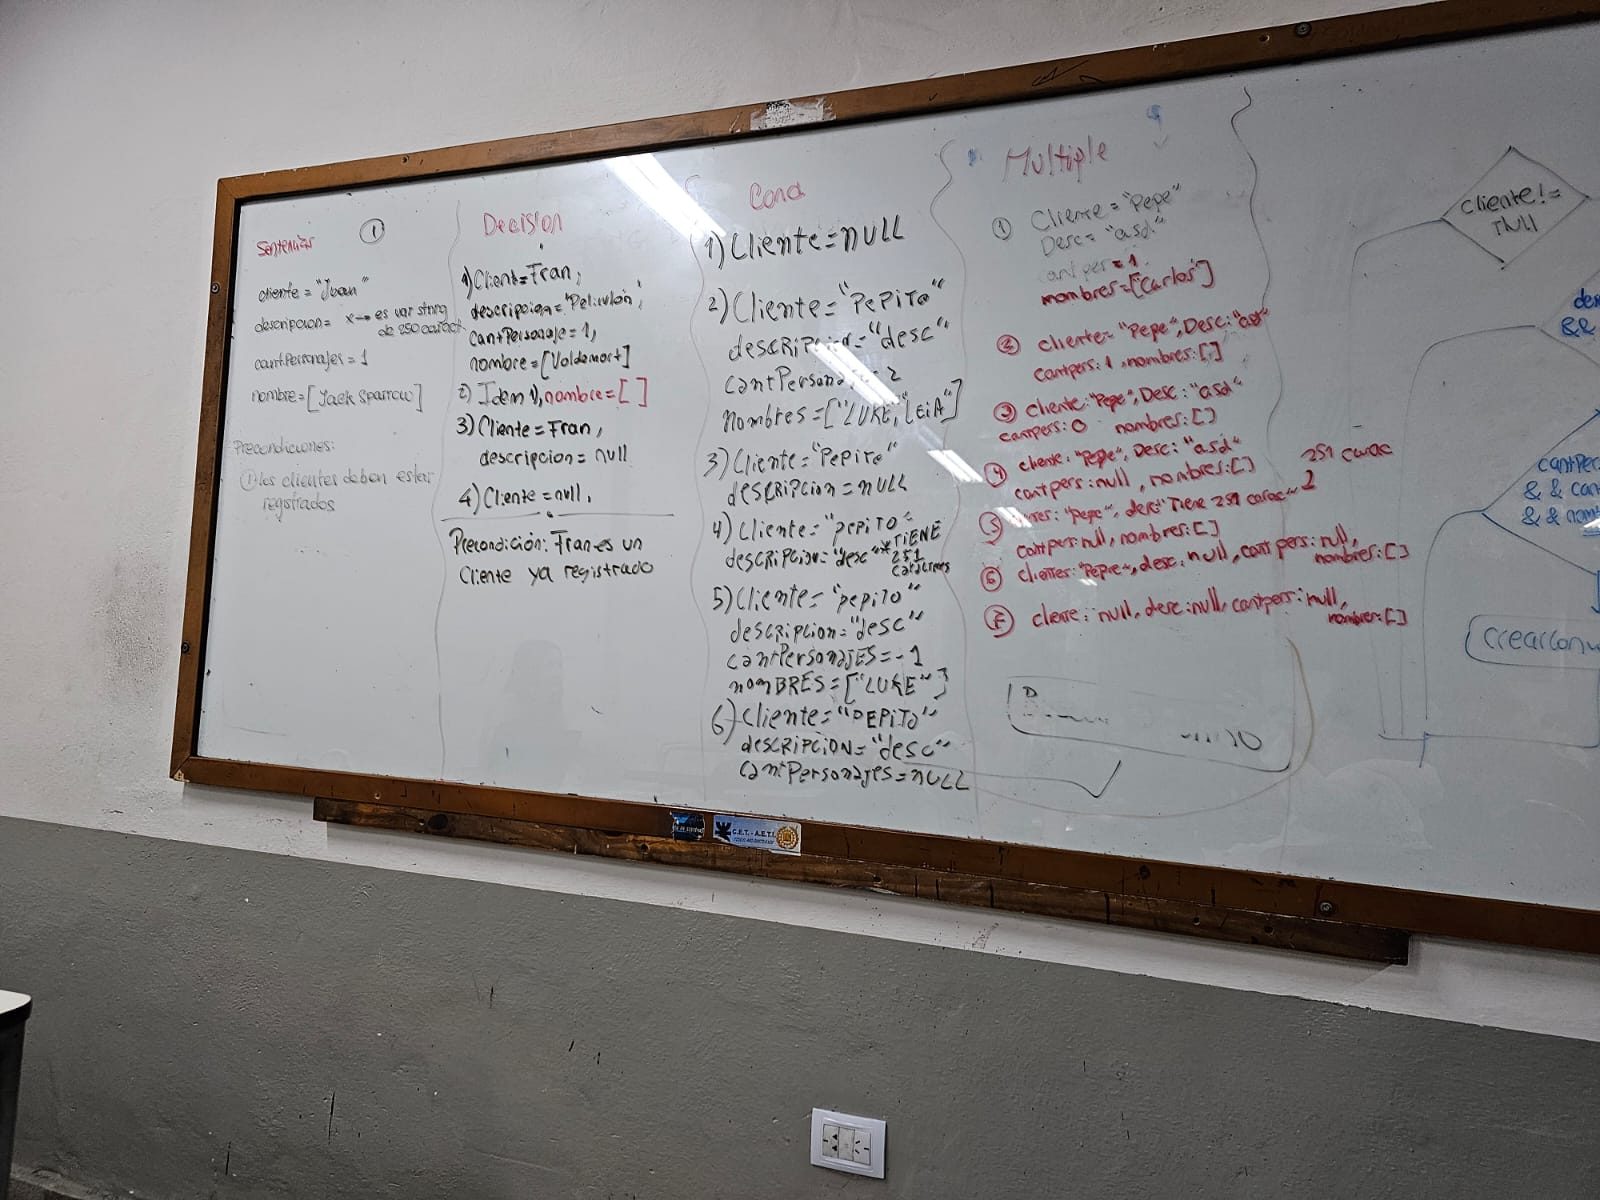 Sentencias ①
cliente = "Juan"
descripcion = x → es var string
de 250 caract.
cantPersonajes = 1
nombre = [Jack Sparrow]
Precondiciones:
① los clientes deben estar
registrados
Decisión
1) Client = Fran,
descripcion = "Peliculón",
cantPersonaje = 1,
nombre = [Voldemort]
2) Idem 1, nombre = [ ]
3) Cliente = Fran,
descripcion = null
4) Cliente = null,
Precondición: Fran es un
Cliente ya registrado
Cond
1) Cliente = NULL
2) Cliente = "PEPITO"
descripcion = "desc"
cantPersonajes = 2
nombres = ["LUKE", "LEiA"]
3) Cliente = "PEPiTo"
descripcion = NULL
4) Cliente = "PEPITO"
descripcion = "desc" * TIENE
251
caracteres
5) Cliente = "pepito"
descripcion = "desc"
cantPersonajES = -1
nomBRES = ["LUKE"]
6) Cliente = "PEPITO"
descRiPCiON = "desc"
cantPersonajes = NULL
Multiple
① Cliente = "Pepe"
Desc = "asd"
cantper = 1
nombres = ["Carlos"]
② cliente = "Pepe", Desc: "asd"
cantpers: 1, nombres: [ ]
③ cliente: "Pepe", Desc: "asd"
cantpers: 0 nombres: [ ]
④ cliente: "Pepe", Desc: "asd"
cantpers: null, nombres: [ ]
251 carac
⑤ "Pepe", desc "Tiene 251 carac"
cantpers: null, nombres: [ ]
⑥ clientes: "Pepe", desc: null, cant pers: null,
nombres: [ ]
⑦ cliente: null, desc: null, cantpers: null,
nombres: [ ]
cliente! =
null
des
&&
cantPer
&& can
&& nom
crearConv
C.E.T. - A.E.T.I.